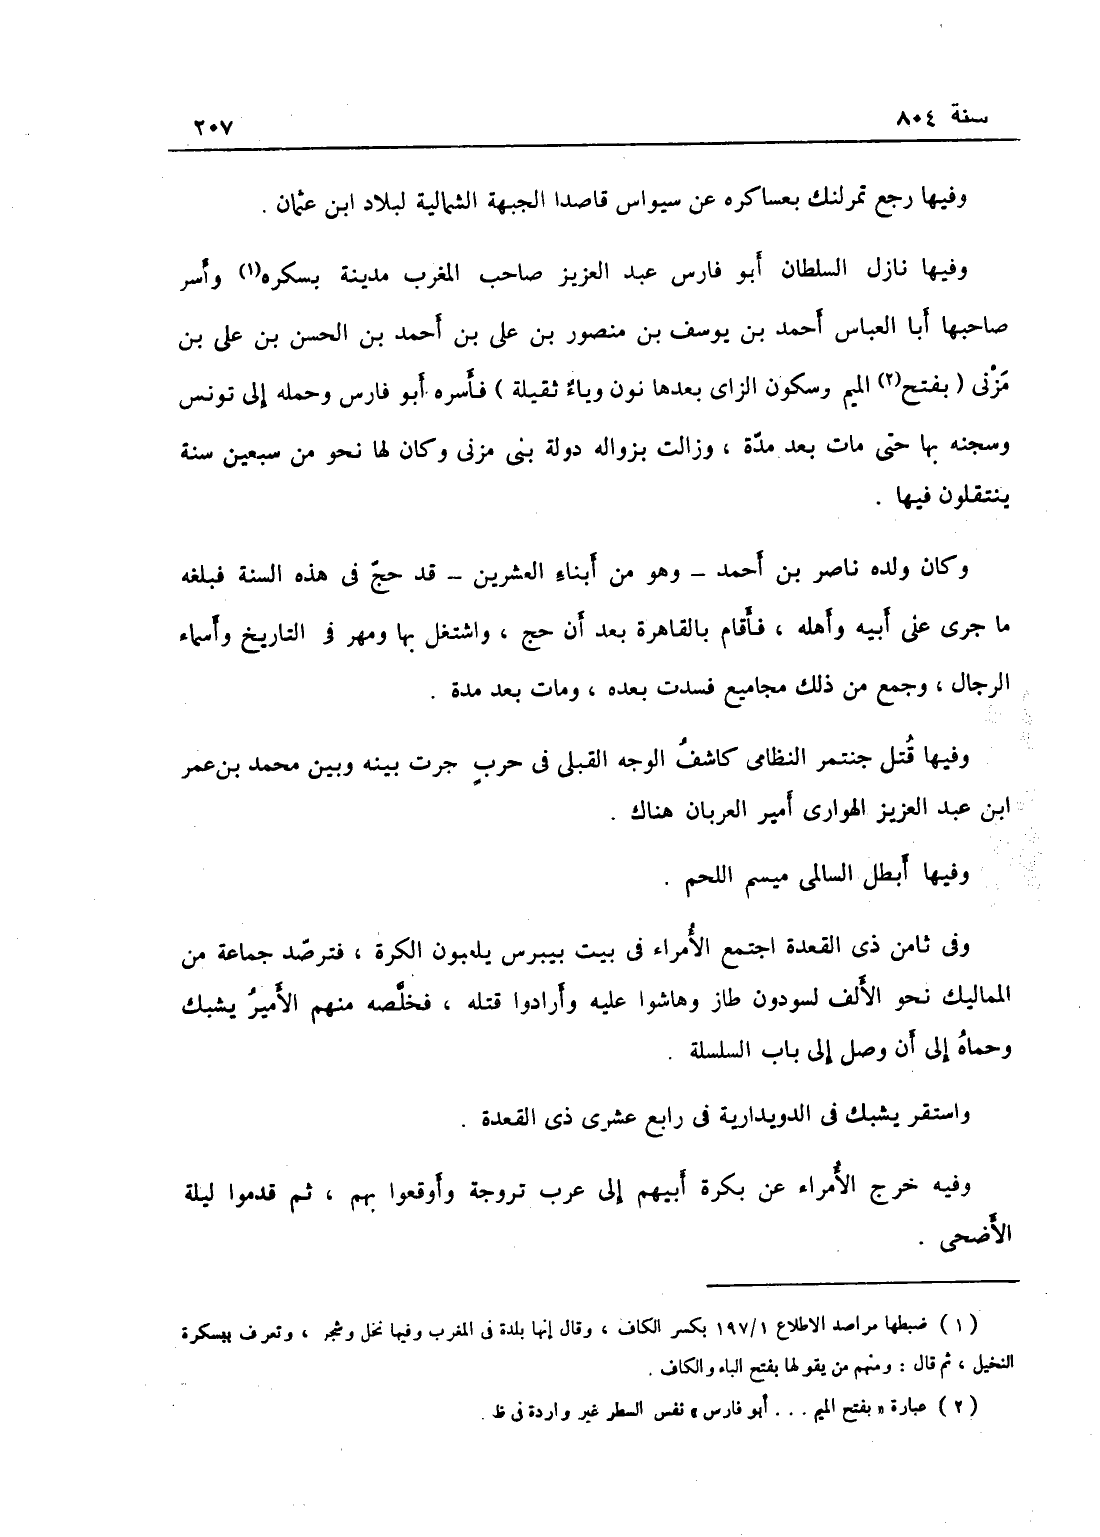 سنة ٨٠٤
٢٠٧
وفيها رجع تمرلنك بعساكره عن سيواس قاصدا الجبهة الشمالية لبلاد ابن عثمان .
وفيها نازل السلطان أبو فارس عبد العزيز صاحب المغرب مدينة بسكره(١) وأسر
صاحبها أبا العباس أحمد بن يوسف بن منصور بن على بن أحمد بن الحسن بن على بن
مَزْنى ( بفتح(٢) الميم وسكون الزاى بعدها نون وياءٌ ثقيلة ) فأسره أبو فارس وحمله إلى تونس
وسجنه بها حتى مات بعد مدّة ، وزالت بزواله دولة بنى مزنى وكان لها نحو من سبعين سنة
ينتقلون فيها .
وكان ولده ناصر بن أحمد – وهو من أبناءِ العشرين – قد حجّ فى هذه السنة فبلغه
ما جرى على أبيه وأهله ، فأقام بالقاهرة بعد أن حج ، واشتغل بها ومهر فى التاريخ وأسماء
الرجال ، وجمع من ذلك مجاميع فسدت بعده ، ومات بعد مدة .
وفيها قُتل جنتمر النظامى كاشفُ الوجه القبلى فى حربٍ جرت بينه وبين محمد بن عمر
ابن عبد العزيز الهوارى أمير العربان هناك .
وفيها أبطل السالمى ميسم اللحم .
وفى ثامن ذى القعدة اجتمع الأُمراء فى بيت بيبرس يلعبون الكرة ، فترصّد جماعة من
المماليك نحو الألف لسودون طاز وهاشوا عليه وأرادوا قتله ، فخلَّصه منهم الأَميرُ يشبك
وحماهُ إلى أن وصل إلى باب السلسلة .
واستقر يشبك فى الدويدارية فى رابع عشرى ذى القعدة .
وفيه خرج الأُمراء عن بكرة أبيهم إلى عرب تروجة وأوقعوا بهم ، ثم قدموا ليلة
الأَضحى .
( ١ ) ضبطها مراصد الاطلاع ١٩٧/١ بكسر الكاف ، وقال إنها بلدة فى المغرب وفيها نخل وشجر ، وتعرف ببسكرة
النخيل ، ثم قال : ومنهم من يقولها بفتح الباء والكاف .
( ٢ ) عبارة « بفتح الميم . . . أبو فارس » نفس السطر غير واردة فى ظ .